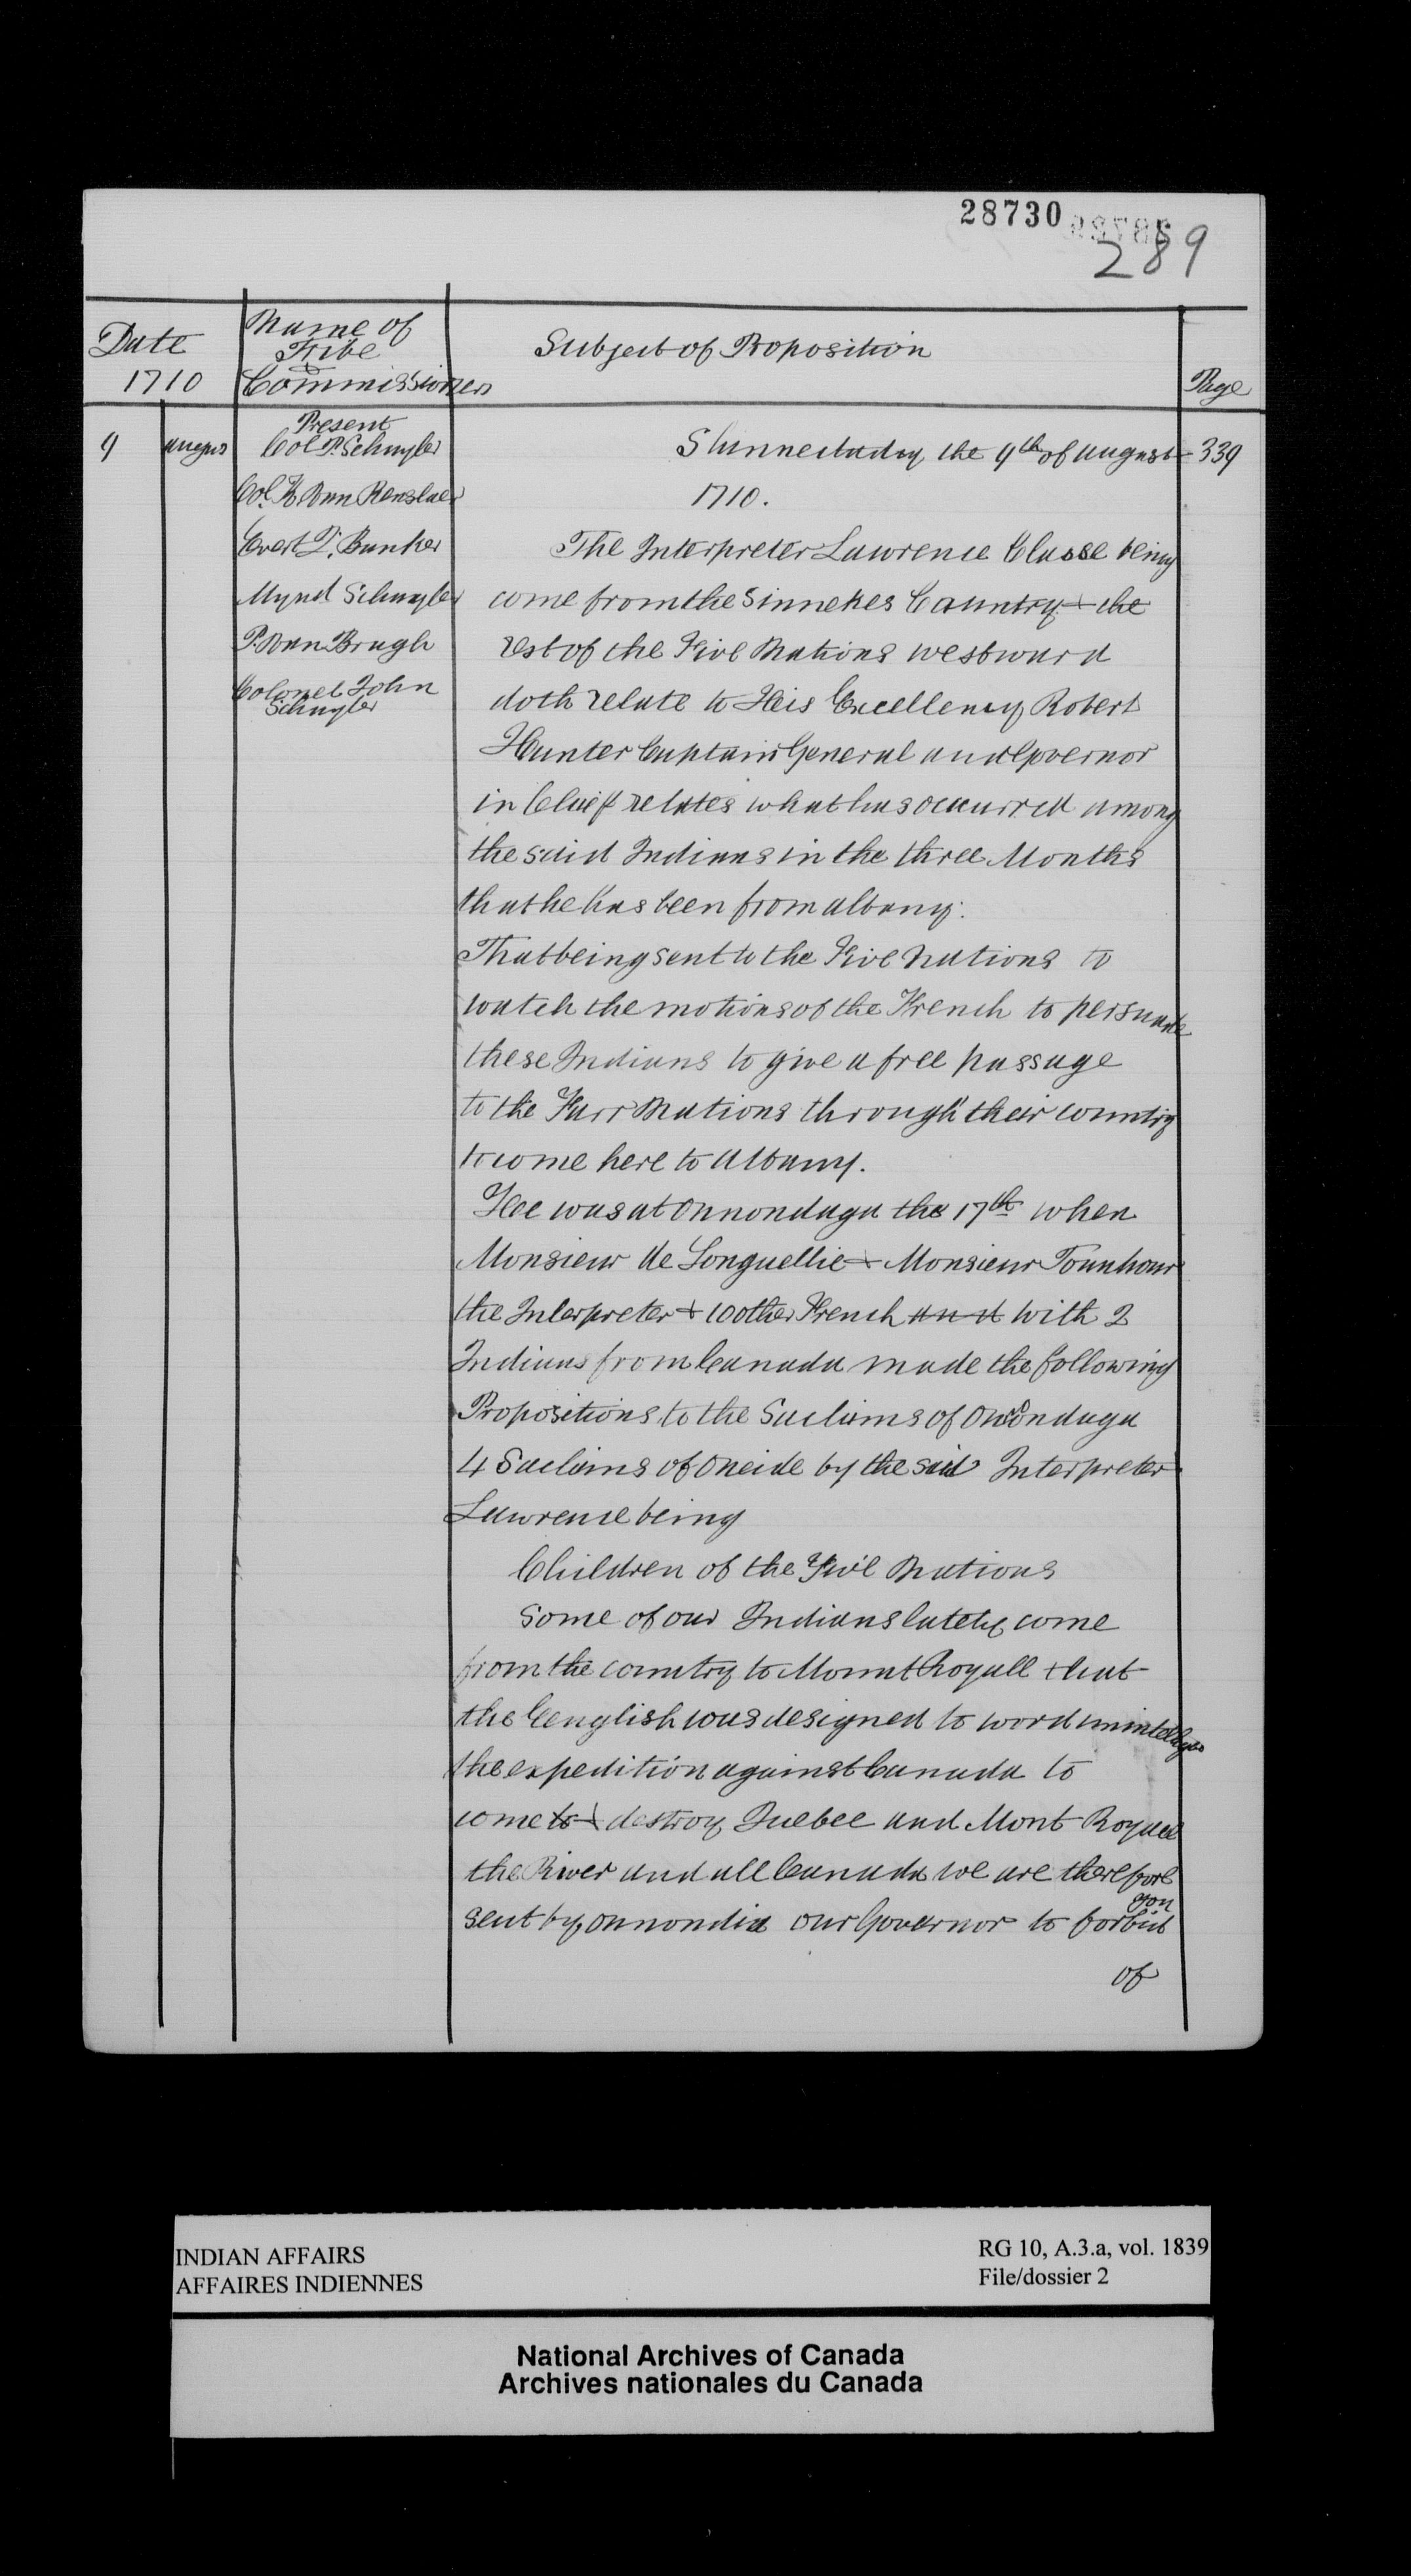 28730
289
Date
1710
Name of
Tribe
&
Commissioners
Subject of Proposition
Page
9 august
Present
Col P. Schuyler
Col. K Van Renslaer
Evert P. Banker
Mynd Schuyler
P. Van Brugh
Colonel John
Schuyler
Shinnectady the 9th of august 339
1710.
The Interpreter Lawrence Classe being
come from the Sinnekes Country & the
rest of the Five Nations westward
doth relate to His Excellency Robert
Hunter Captain General and Governor
in Chief relates what has occurred among
the said Indians in the three Months
that he has been from albany.
That being sent to the Five Nations to
watch the motions of the French to persuade
these Indians to give a free passage
to the Farr Nations through their country
to come here to Albany.
Hee was at Onnondaga the 17th when
Monsieur de Longuellie & Monsieur
the Interpreter & 10 other French and with 2
Indians from Canada made the following
Propositions to the Sachims of Onnondaga
4 Sachims of Oneide by the said Interpreter
Lawrence being
Children of the Five Nations
Some of our Indians lately come
from the country to Mount Royall that
the English was designed to word unintelligible
the expedition against Canada to
come to & destroy Quebec and Mont Royall
the River and all Canada we are therefore
sent by onnondio our Governor to forbid you
of
INDIAN AFFAIRS
AFFAIRES INDIENNES
RG 10, A.3.a, vol. 1839
File/dossier 2
National Archives of Canada
Archives nationales du Canada